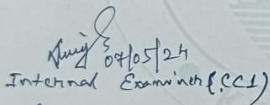 07/05/24
Internal Examiner (CC1)